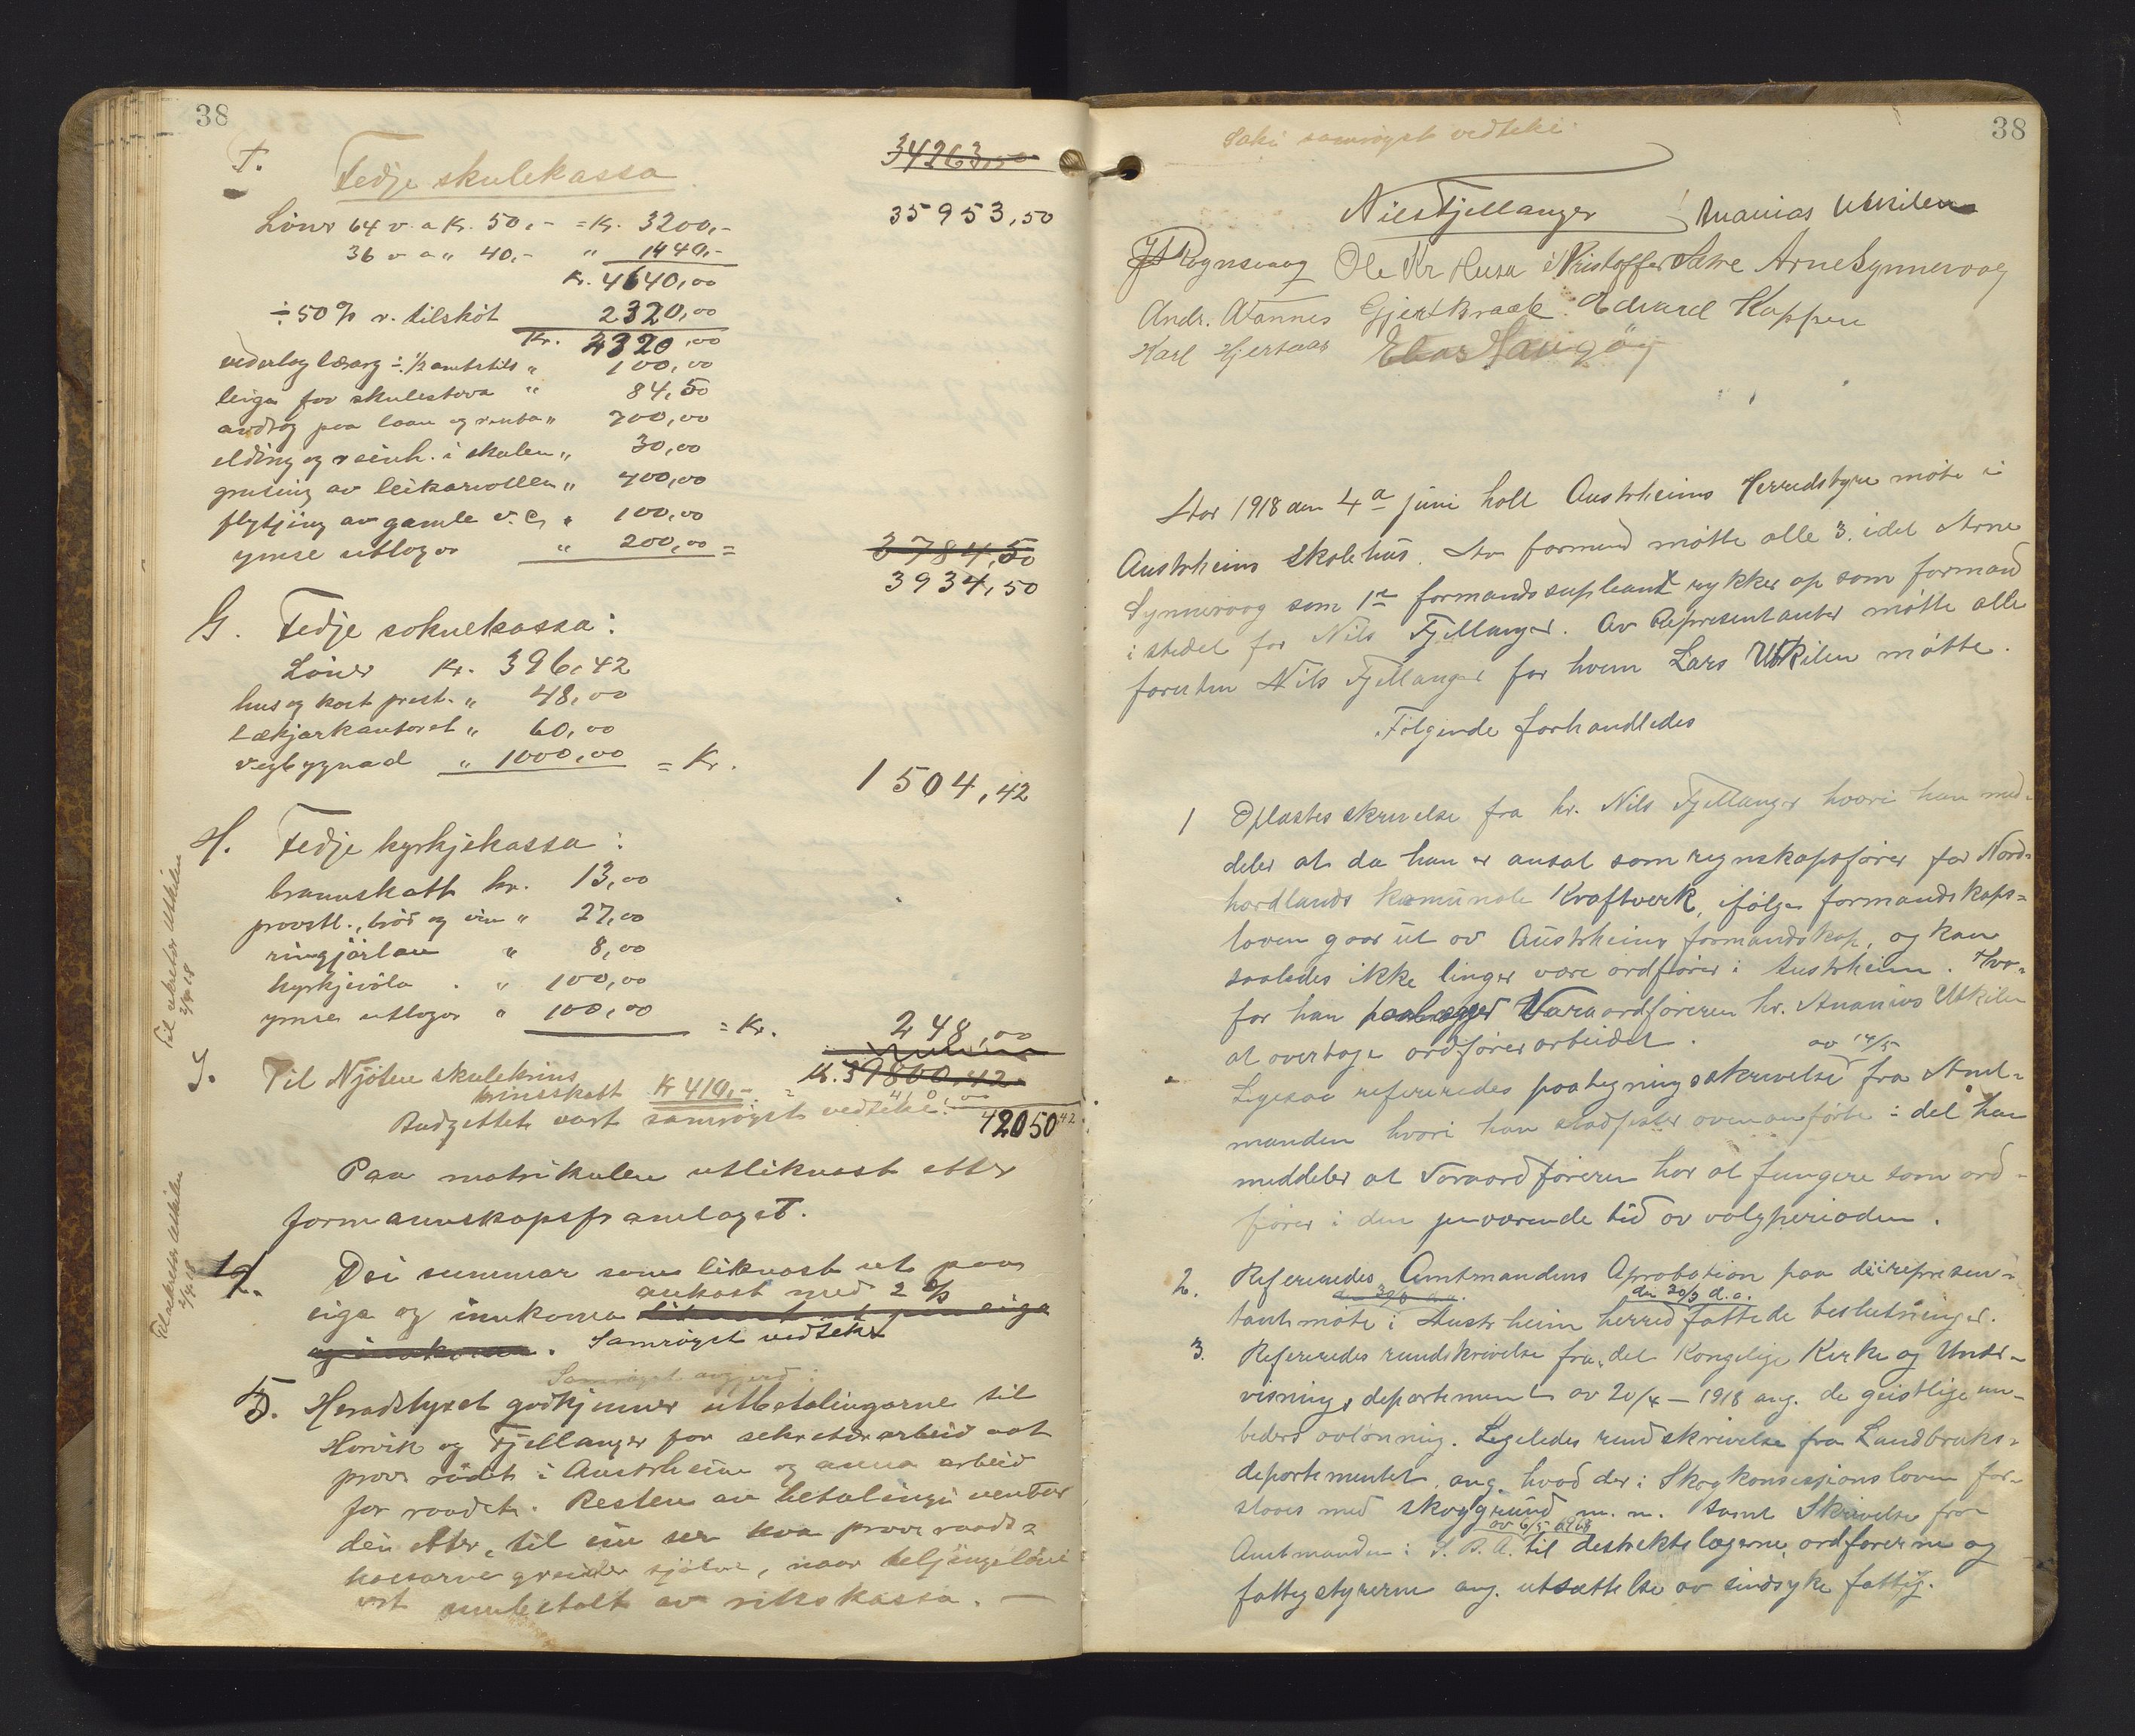 38
F. Fedje skulekassa
34263,00
35953,50
Löner 64 v. a Kr. 50,- = Kr. 3200,-
36 v a " 40,- " 1440,-
Kr. 4640,00
÷ 50 % v. tilsköt 2320,00
Kr. 2320,00
vederlag lærarg ÷ 1/2 amtstils " 100,00
leiga for skulestova " 84,50
avdrag paa laan og renta " 700,00
elding og reinh. i skulen " 30,00
grusing av leikarvollen " 400,00
flytjing av gamle v. C. " 100,00
ymse utlogor " 200,00 =
3784,50
3934,50
G. Fedje soknekassa:
Löner Kr. 396,42
hus og kost prest. " 48,00
lækjarkontoret " 60,00
vegbygnad " 1000,00 = Kr.
1504,42
H. Fedje kyrkjekassa:
brannskatt kr. 13,00
provstl., bröd og vin " 27,00
ringjarlön " 8,00
kyrkjevöla " 100,00
ymse utlogor " 100,00 = Kr.
248,00
Kr. 39800,42
J. Til Njöten skulekrins
krinsskatt Kr 410,- = 410,00
Budgettet vart samröyst vedteke. 42050,42
Paa matrikulen utliknast etter
formannskapsframlaget.
Til sekretær Utkilen
2/4 18
Til sekretær Utkilen
2/4 18
12. Dei summar som liknast ut paa
eiga og innkoma aukast med 2 % liknast ut paa eiga
og innkoma. Samröyst vedteke
Samröyst avgjerd:
5. Heradstyret godkjenner utbetalingarne til
Horvik og Fjellanger for sekretærarbeid aat
provi. rådet i Austrheim og anna arbeid
for raadet. Resten av betalingi ventar
dei etter, til ein ser kva provi. raads-
kassarne greider sjölve, naar teljingslöni
vert innbetalt av rikskassa. —
38
Saki samröyst vedteki
Nils Fjellanger Ananias Utkilen
J Rognsvaag Ole Kr Husa Kristoffer Sætre Arne Synnevaag
Andr. Wannes Gjert Kraak Edvard Hoppen
Karl Hjertaas Elias Haugöy
Aar 1918 den 4a juni holt Austrheims Herredstyre möte i
Austrheims Skolehus. Av formend mötte alle 3. idet Arne
Synnevaag som 1ste formandssupleant rykker op som formand
i stedet for Nils Fjellanger. Av Representanter mötte alle
foruten Nils Fjellanger for hvem Lars Utkilen mötte.
Fölgende forhandledes
1 Oplæstes skrivelse fra hr. Nils Fjellanger hvori han med-
deler at da han er ansat som regnskapsförer for Nord-
hordlands komunale Kraftverk, ifölge formandskaps-
loven gaar ut av Austrheims formandskap, og kan
saaledes ikke lenger være ordförer i Austrheim. Hvor-
for han paalægger Varaordföreren hr. Ananias Utkilen
at overtage ordförerarbeidet.
Ligesaa refereredes paategningsskrivelse av 14/5 fra Amt-
manden hvori han stadfester ovenanförte i det han
meddeler at Varaordföreren har at fungere som ord-
förer i den gjenværende tid av valgperioden.
2. Refereredes Amtmandens Aprobation paa de i represen-
den 20/3 d. a.
tantmöte i Austrheim herred fattede beslutninger.
3. Refereredes rundskrivelse fra det Kongelige Kirke og Under-
visnings departement av 20/4 – 1918 ang. de geistlige em-
beders avlönning. Ligeledes rundskrivelse fra Landbruks-
departementet ang. hvad der i Skogkonsesjonsloven for-
staaes med skoggrund m. m. samt Skrivelse fra
Amtmanden i S. B. A. av 6/5 1918 til destriktslægerne, ordförerne og
fattigstyrerne ang. utsættelse av sindsyke fattig.